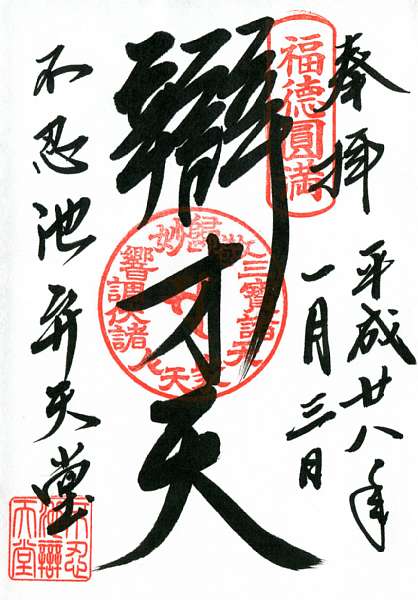 奉拝
平成廿八年
一月三日
福德圓満
辯才天
不忍池弁天堂
不忍
池辯
天堂